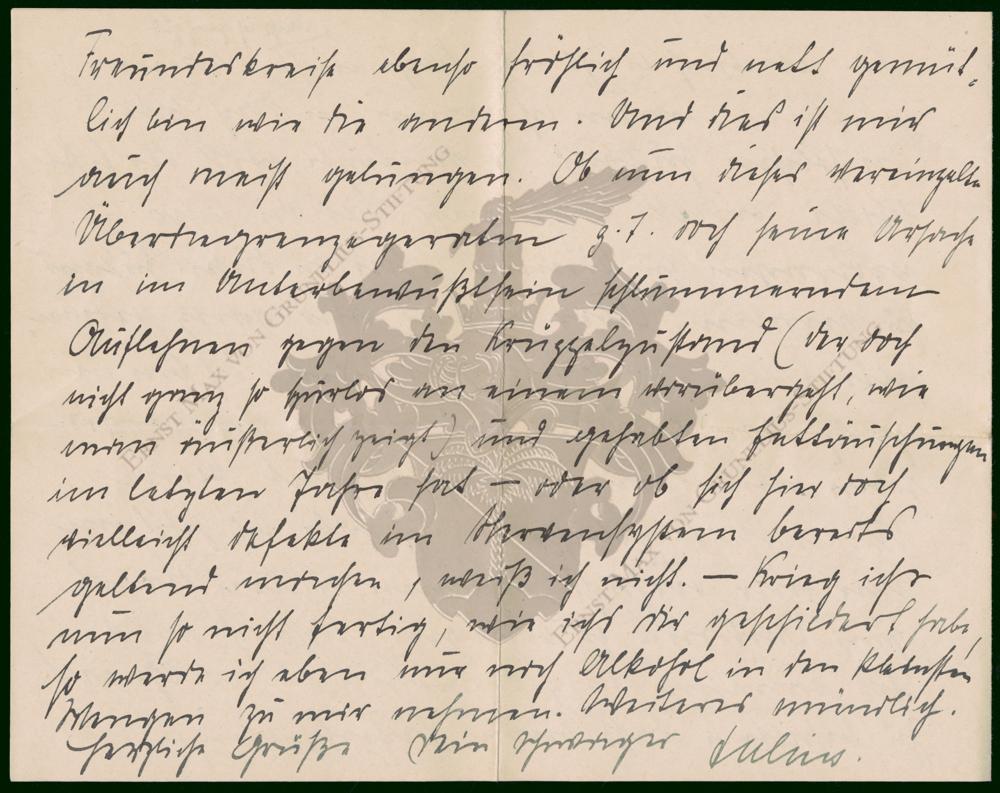 Freundeskreise ebenso fröhlich und nett gemüt-
lich bin wie die anderen. Und dies ist mir
auch meist gelungen. Ob nun dieses vereinzelte
Überdiegrenzegeraten z. T. doch seine Ursache
in im Unterbewußtsein schlummerndem
Auflehnen gegen den Krüppelzustand (der doch
nicht ganz so spurlos an einem vorübergeht, wie
man äußerlich zeigt) und gehabten Enttäuschungen
im letzten Jahre hat – oder ob sich hier doch
vielleicht Defekte im Nervensystem bereits
geltend machen, weiß ich nicht. – Krieg ichs
nun so nicht fertig, wie ichs Dir geschildert habe,
so werde ich eben nur noch Alkohol in den kleinsten
Mengen zu mir nehmen. Weiteres mündlich.
Herzliche Grüße Dein Schwager Julius.
ERNST MAX VON GRUNELIUS-STIFTUNG
ERNST MAX VON GRUNELIUS-STIFTUNG